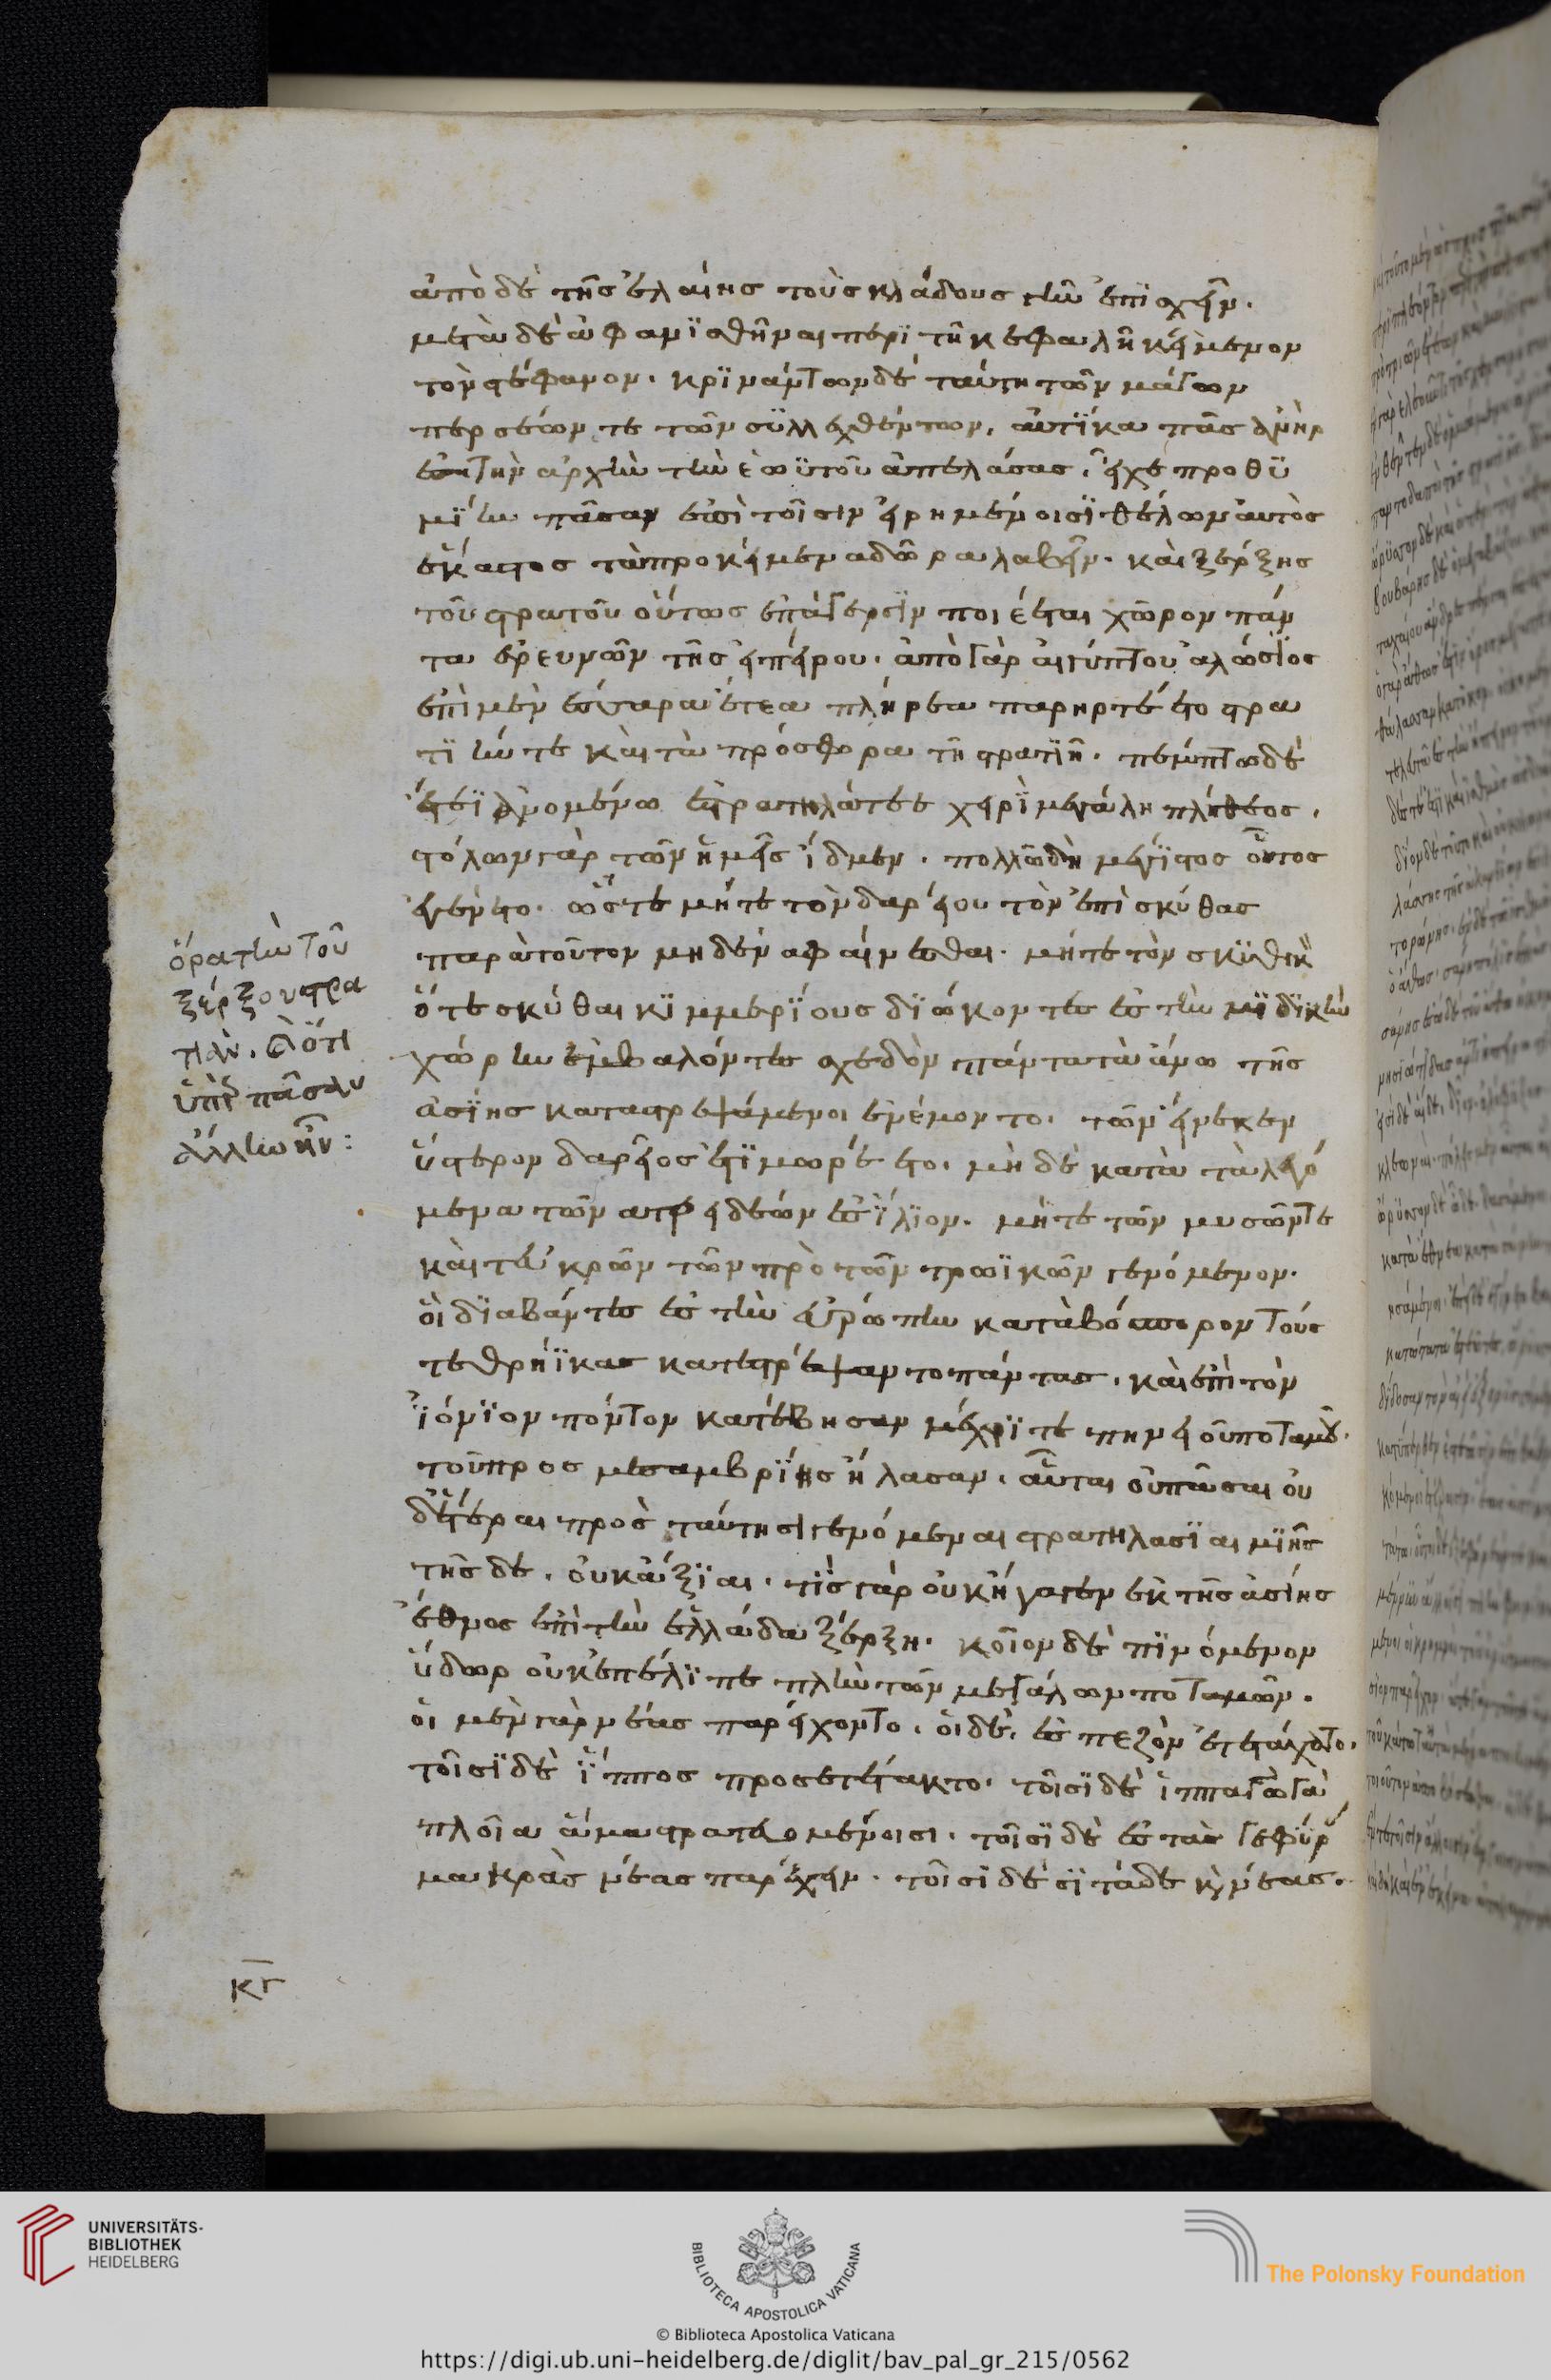 ἀπὸ δὲ τῆς ἐλαίης τοὺς κλάδους γῆν ἐπισχεῖν.
μετὰ δὲ ἀφανισθῆναι περὶ τῆ κεφαλῆ κείμενον
τὸν στέφανον. κρινάντων δὲ ταύτη τῶν μάγων
περσέων τε τῶν συλλεχθέντων, αὐτίκα πᾶς ἀνὴρ
ἐς τὴν ἀρχὴν τὴν ἑωυτοῦ ἀπελάσας, εἶχε προθυ
μίην πᾶσαν ἐπὶ τοῖσιν εἰρημένοισι θέλων αὐτὸς
ἕκαστος τὰ προκείμενα δῶρα λαβεῖν. καὶ ξέρξης
τοῦ στρατοῦ οὕτως ἐπάγερσιν ποιέεται χῶρον πάν
τα ἐρευνῶν τῆς ἠπείρου. ἀπὸ γὰρ αἰγύπτου ἁλώσιος
ἐπὶ μὲν τέσσαρα ἔτεα πλήρεα παρηρτέετο στρα
τιήν τε καὶ τὰ πρόσφορα τῆ στρατιῆ. πέμπτω δὲ
ἔτεϊ ἀνομένω ἐστρατηλάτεε χειρὶ μεγάλη πλήθεος.
στόλων γὰρ τῶν ἡμεῖς ἴδμεν. πολλῶ δὴ μέγιστος οὗτος
ἐγένετο. ὥστε μήτε τὸν δαρείου τὸν ἐπὶ σκύθας
παρὰ τοῦτον μηδὲν φαίνεσθαι. μήτε τὸν σκυθικὸν
ὅτε σκύθαι κιμμερίους διώκοντες ἐς τὴν μηδικὴν
χώρην ἐμβαλόντες σχεδὸν πάντα τὰ ἄνω τῆς
ἀσίης καταστρεψάμενοι ἐνέμοντο. τῶν εἵνεκεν
ὕστερον δαρεῖος ἐτιμωρέετο. μὴ δὲ κατὰ τὰ λεγό
μενα τῶν ἀτρειδέων ἐς ἴλιον. μήτε τῶν μυσῶν τε
καὶ τευκρῶν τῶν πρὸ τῶν τρωϊκῶν γενόμενον.
οἳ διαβάντες ἐς τὴν εὐρώπην κατὰ βόσπορον τούς
τε θρήϊκας κατεστρέψαντο πάντας. καὶ ἐπὶ τὸν
ἰόνιον πόντον κατέβησαν μέχρι τε πηνειοῦ ποταμοῦ.
τοῦ πρὸς μεσαμβρίης ἤλασαν. αὗται οὐ πᾶσαι οὐ
δ' ἕτεραι πρὸς ταύτησι γενόμεναι στρατηλασίαι μιῆς
τῆσδε. οὐκ ἄξιαι. τί γὰρ οὐκ ἤγαγεν ἐκ τῆς ἀσίης
ἔθνος ἐπὶ τὴν ἑλλάδα ξέρξη. κοῖον δὲ πινόμενον
ὕδωρ οὐκ ἐπέλιπε πλὴν τῶν μεγάλων ποταμῶν.
οἱ μὲν γὰρ νέας παρείχοντο. οἱ δὲ, ἐς πεζὸν ἐτετάχατο.
τοῖσι δὲ ἵππος προσετέτακτο. τοῖσι δὲ ἱππαγωγὰ
πλοῖα ἅμα στρατευομένοισι. τοῖσι δὲ ἐς τὰς γεφύρ
μακρὰς νέας παρέχειν. τοῖσι δὲ σῖτά τε καὶ νέας.
ὅρα τὴν τοῦ
ξέρξου στρα
τιὰν. ὅτι
ὑπὲρ πᾶσαν
ἄλλην ἦν:
κγ
UNIVERSITÄTS-
BIBLIOTHEK
HEIDELBERG
BIBLIOTECA APOSTOLICA VATICANA
The Polonsky Foundation
© Biblioteca Apostolica Vaticana
https://digi.ub.uni-heidelberg.de/diglit/bav_pal_gr_215/0562